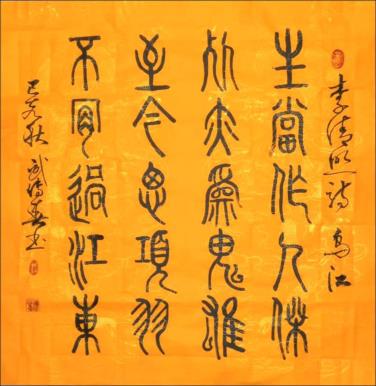 李清照诗 乌江
生當作人傑
死亦爲鬼雄
至今思項羽
不肯過江東
己亥秋 书